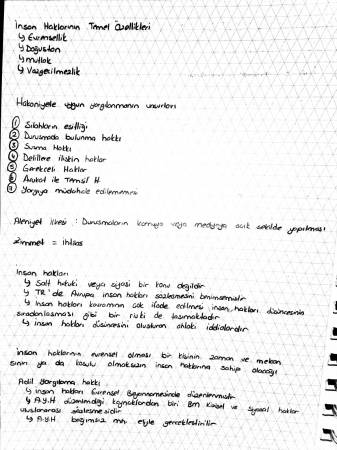 İnsan Haklarının Temel Özellikleri
↳ Evrensellik
↳ Doğuştan
↳ Mutlak
↳ Vazgeçilmezlik
Hakkaniyete uygun yargılanmanın unsurları
① Silahların eşitliği
② Duruşmada bulunma hakkı
③ Susma Hakkı
④ Delillere ilişkin haklar
⑤ Gerekçeli Haklar
⑥ Avukat ile Temsil H.
⑦ Yargıya müdahale edilememesi
Aleniyet ilkesi : Duruşmaların kamuya veya medyaya açık şekilde yapılması
Zimmet = ihtilas
İnsan hakları
↳ Salt hukuki veya siyasi bir konu değildir
↳ TR'de Avrupa insan hakları sözleşmesini benimsemiştir
↳ İnsan hakları kavramının çok ifade edilmesi insan hakları düşüncesinin
sıradanlaşması gibi bir riski de taşımaktadır
↳ insan hakları düşüncesini oluşturan ahlaki iddialardır
insan haklarının evrensel olması bir kişinin zaman ve mekan
sınırı ya da koşulu olmaksızın insan haklarına sahip olacağı
Adil Yargılama hakkı
↳ insan hakları Evrensel Beyannamesinde düzenlenmiştir
↳ A.Y.H düzenlendiği kaynaklardan biri BM Kişisel ve siyasal haklar
uluslararası sözleşmesidir
↳ A.Y.H bağımsız mah. eliyle gerçekleştirilir